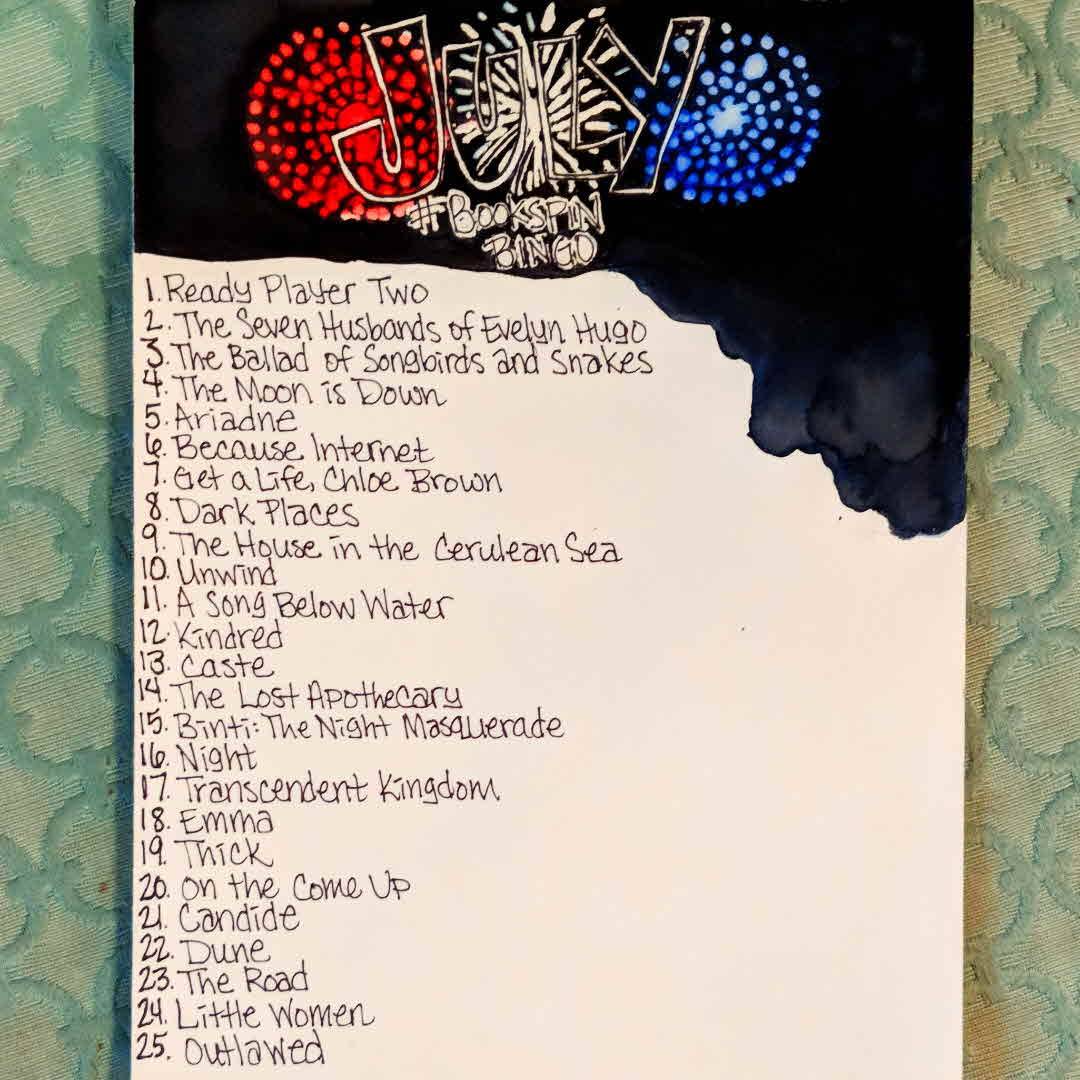 JULY
#BOOKSPIN
BINGO
1. Ready Player Two
2. The Seven Husbands of Evelyn Hugo
3. The Ballad of Songbirds and Snakes
4. The Moon is Down
5. Ariadne
6. Because Internet
7. Get a Life, Chloe Brown
8. Dark Places
9. The House in the Cerulean Sea
10. Unwind
11. A Song Below Water
12. Kindred
13. Caste
14. The Lost Apothecary
15. Binti: The Night Masquerade
16. Night
17. Transcendent Kingdom
18. Emma
19. Thick
20. On the Come Up
21. Candide
22. Dune
23. The Road
24. Little Women
25. Outlawed